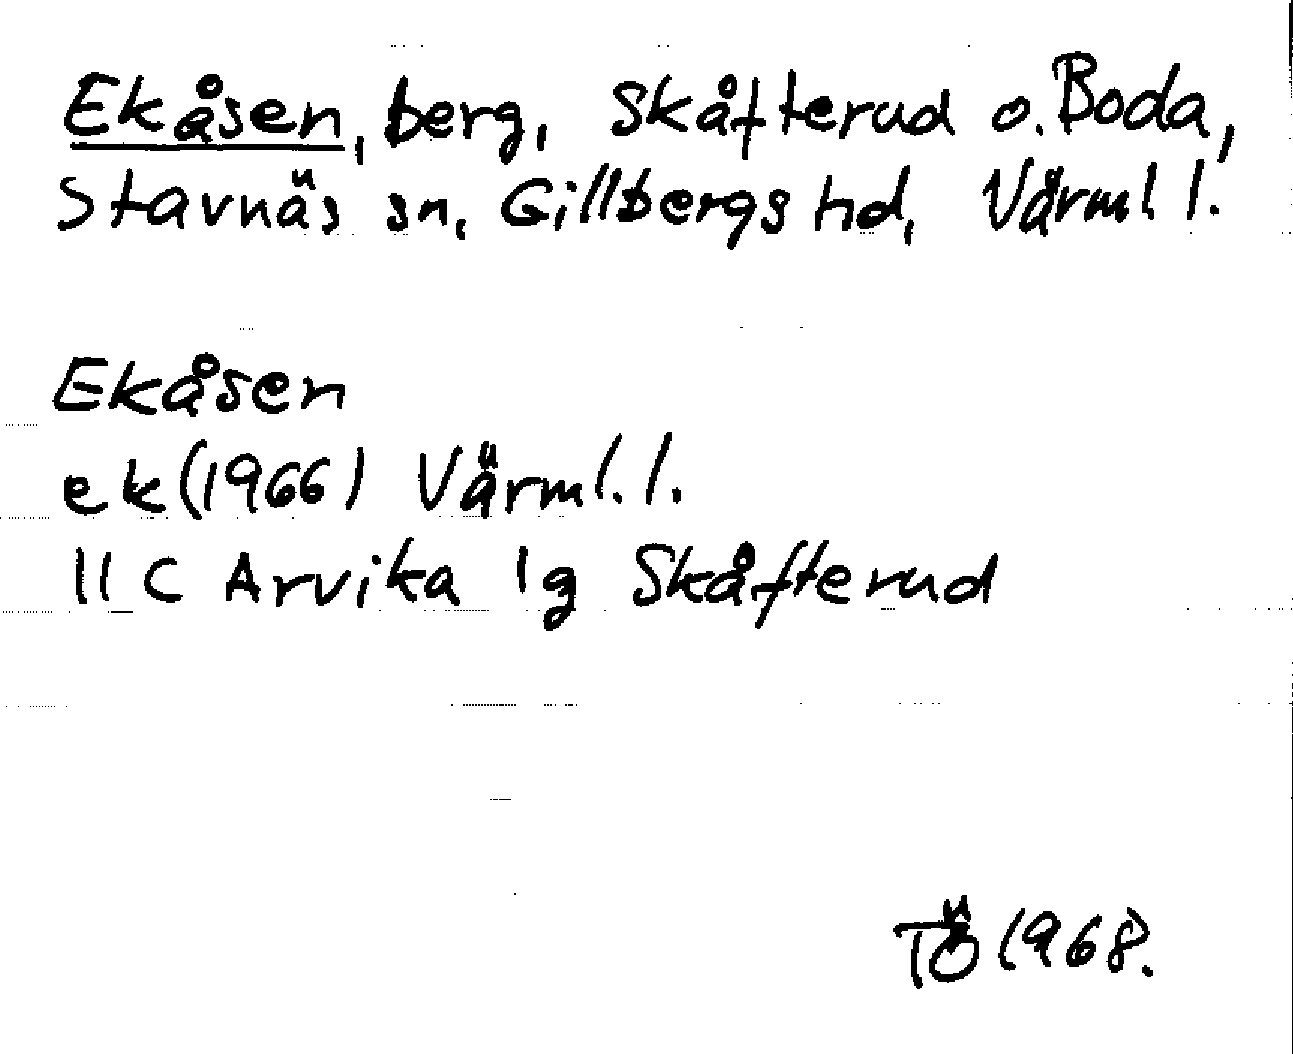 Ekåsen, berg, Skåfterud o. Boda,
Stavnäs sn, Gillbergs hd, Värml l.
Ekåsen
ek (1966) Värml. l.
11 C Arvika 1g Skåfterud
TÖ 1968.